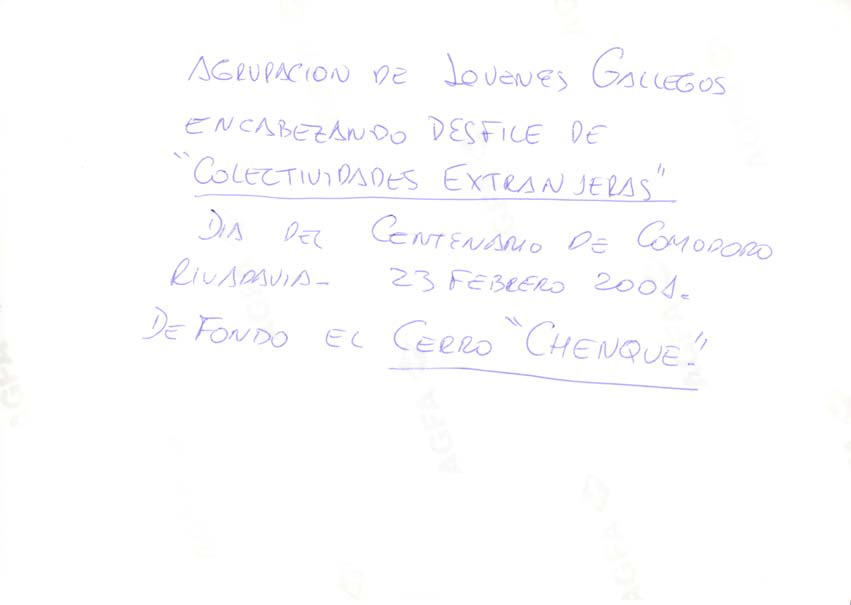 AGRUPACION DE JOVENES GALLEGOS
ENCABEZANDO DESFILE DE
"COLECTIVIDADES EXTRANJERAS"
DIA DEL CENTENARIO DE COMODORO
RIVADAVIA- 23 FEBRERO 2001.
DE FONDO EL CERRO "CHENQUE."
AGFA
AGFA
AGFA
AGFA